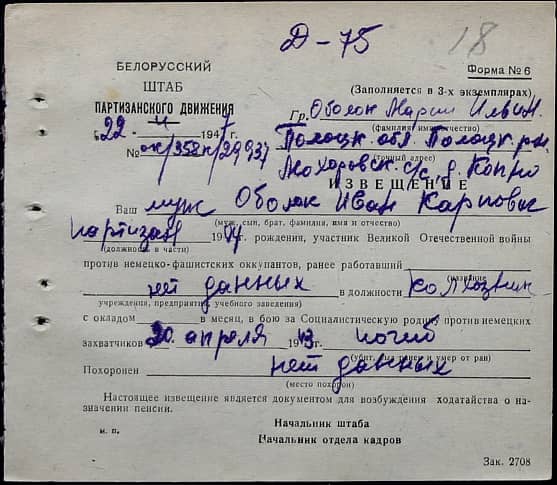 Д-75
18
БЕЛОРУССКИЙ
ШТАБ
ПАРТИЗАНСКОГО ДВИЖЕНИЯ
Форма № 6
(Заполняется в 3-х экземплярах)
„22" 4 1947 г.
№ ок/358к/29937
Гр. Оболок Марии Ильин.
(фамилия имя отчество)
Полоцк. обл. Полоцк. рн.
(точный адрес)
с/с, д.
ИЗВЕЩЕНИЕ
Ваш муж Оболок Иван Карпович
(муж, сын, брат, фамилия, имя и отчество)
партизан 19 г. рождения, участник Великой Отечественной войны
(должность в части)
против немецко-фашистских оккупантов, ранее работавший
(название
нет данных в должности колхозник
учреждения, предприятия, учебного заведения)
с окладом в месяц, в бою за Социалистическую родину против немецких
захватчиков 20. апреля 1943. погиб
(убит, ранен и умер от ран)
Похоронен нет данных
(место похорон)
Настоящее извещение является документом для возбуждения ходатайства о на-
значении пенсии.
м. п.
Начальник штаба
Начальник отдела кадров
Зак. 2708